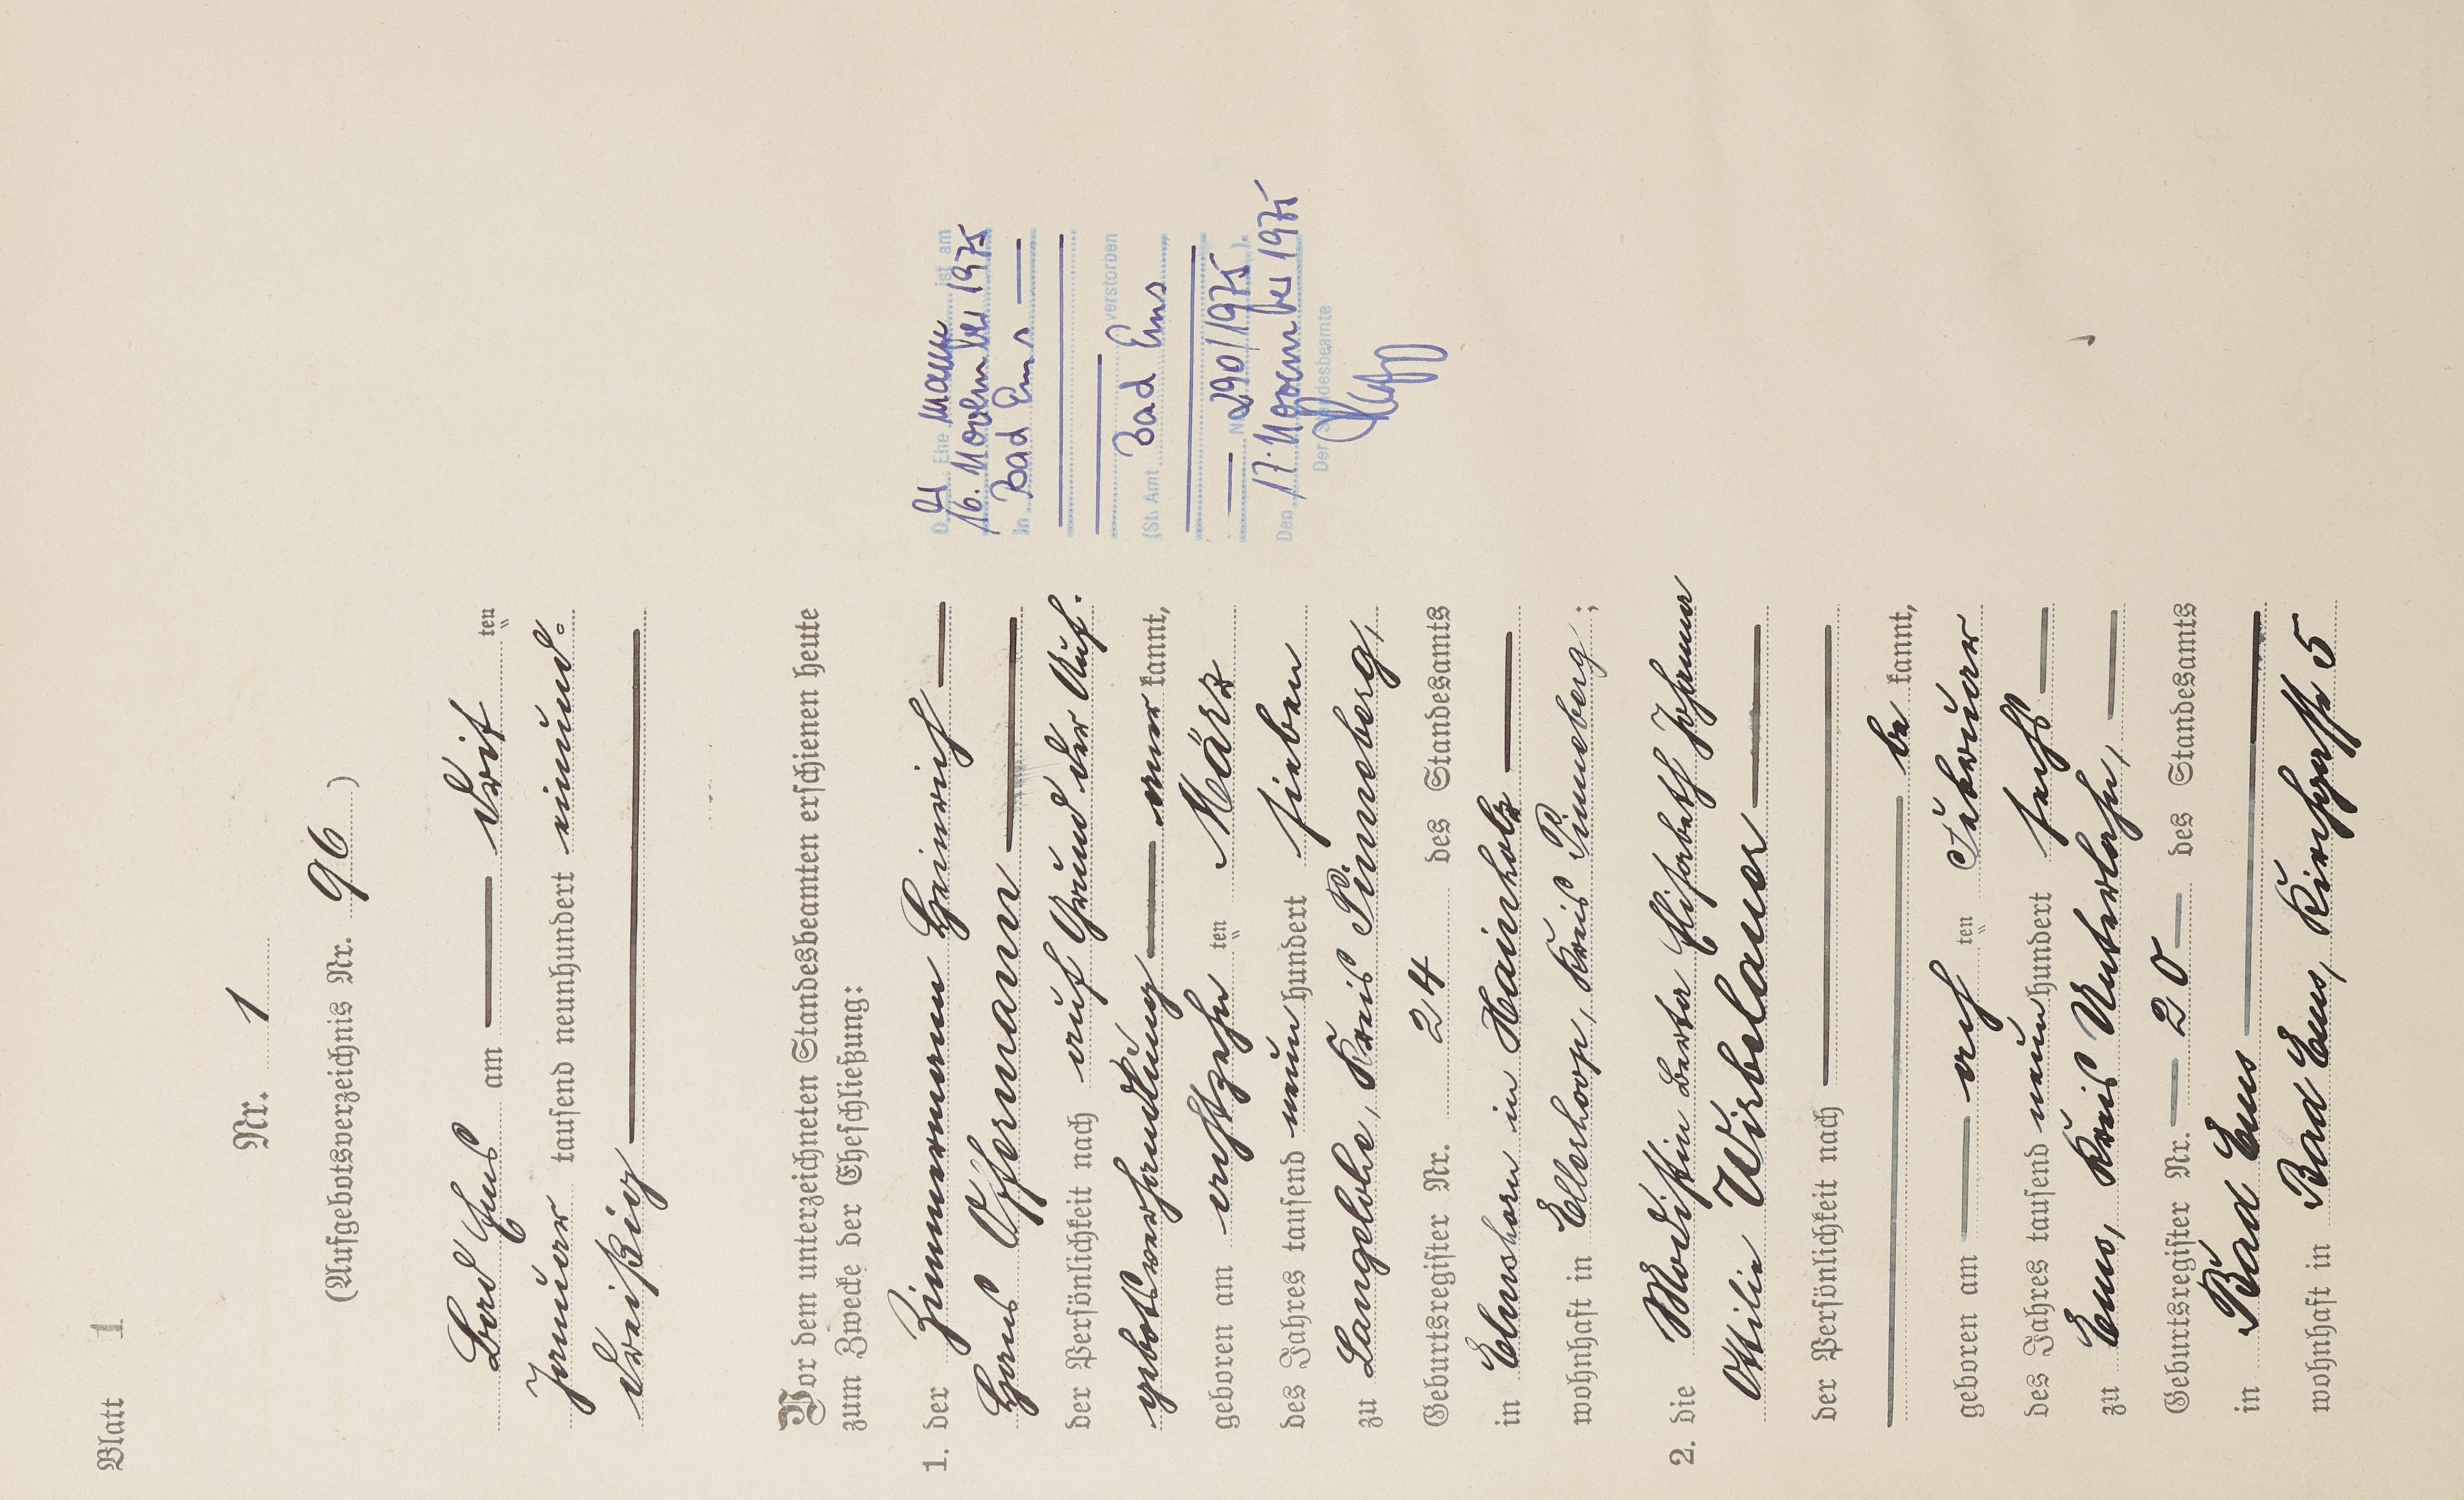 Blatt 1
Nr. 1
(Aufgebotsverzeichnis Nr. 96)
Bad Ems am drit ten
Januar tausend neunhundert einund-
dreißig
Vor dem unterzeichneten Standesbeamten erschienen heute
zum Zwecke der Eheschließung:
1. der Zimmermann Heinrich
Hans Offermann
der Persönlichkeit nach auf Grund der Auf-
gebotsverhandlung aner kannt,
geboren am achtzehn ten März
des Jahres tausend neun hundert sieben
zu Langelohe, Kreis Pinneberg,
Geburtsregister Nr. 24 des Standesamts
in Elmshorn in Hainholz
wohnhaft in Ellerhoop, Kreis Pinneberg;
2. die Modistin Berta Elisabeth Johanna
Ottilie Wirbelauer
der Persönlichkeit nach
be kannt,
geboren am ach ten Februar
des Jahres tausend neun hundert sechs
zu Ems, Kreis Unterlahn,
Geburtsregister Nr. 20 des Standesamts
in Bad Ems
wohnhaft in Bad Ems, Kirchgasse 5
Der Ehe mann ist am
16. November 1975
In Bad Ems
verstorben
(St. Amt Bad Ems
Nr. 290/1975).
Den 17. November 1975
Der Standesbeamte